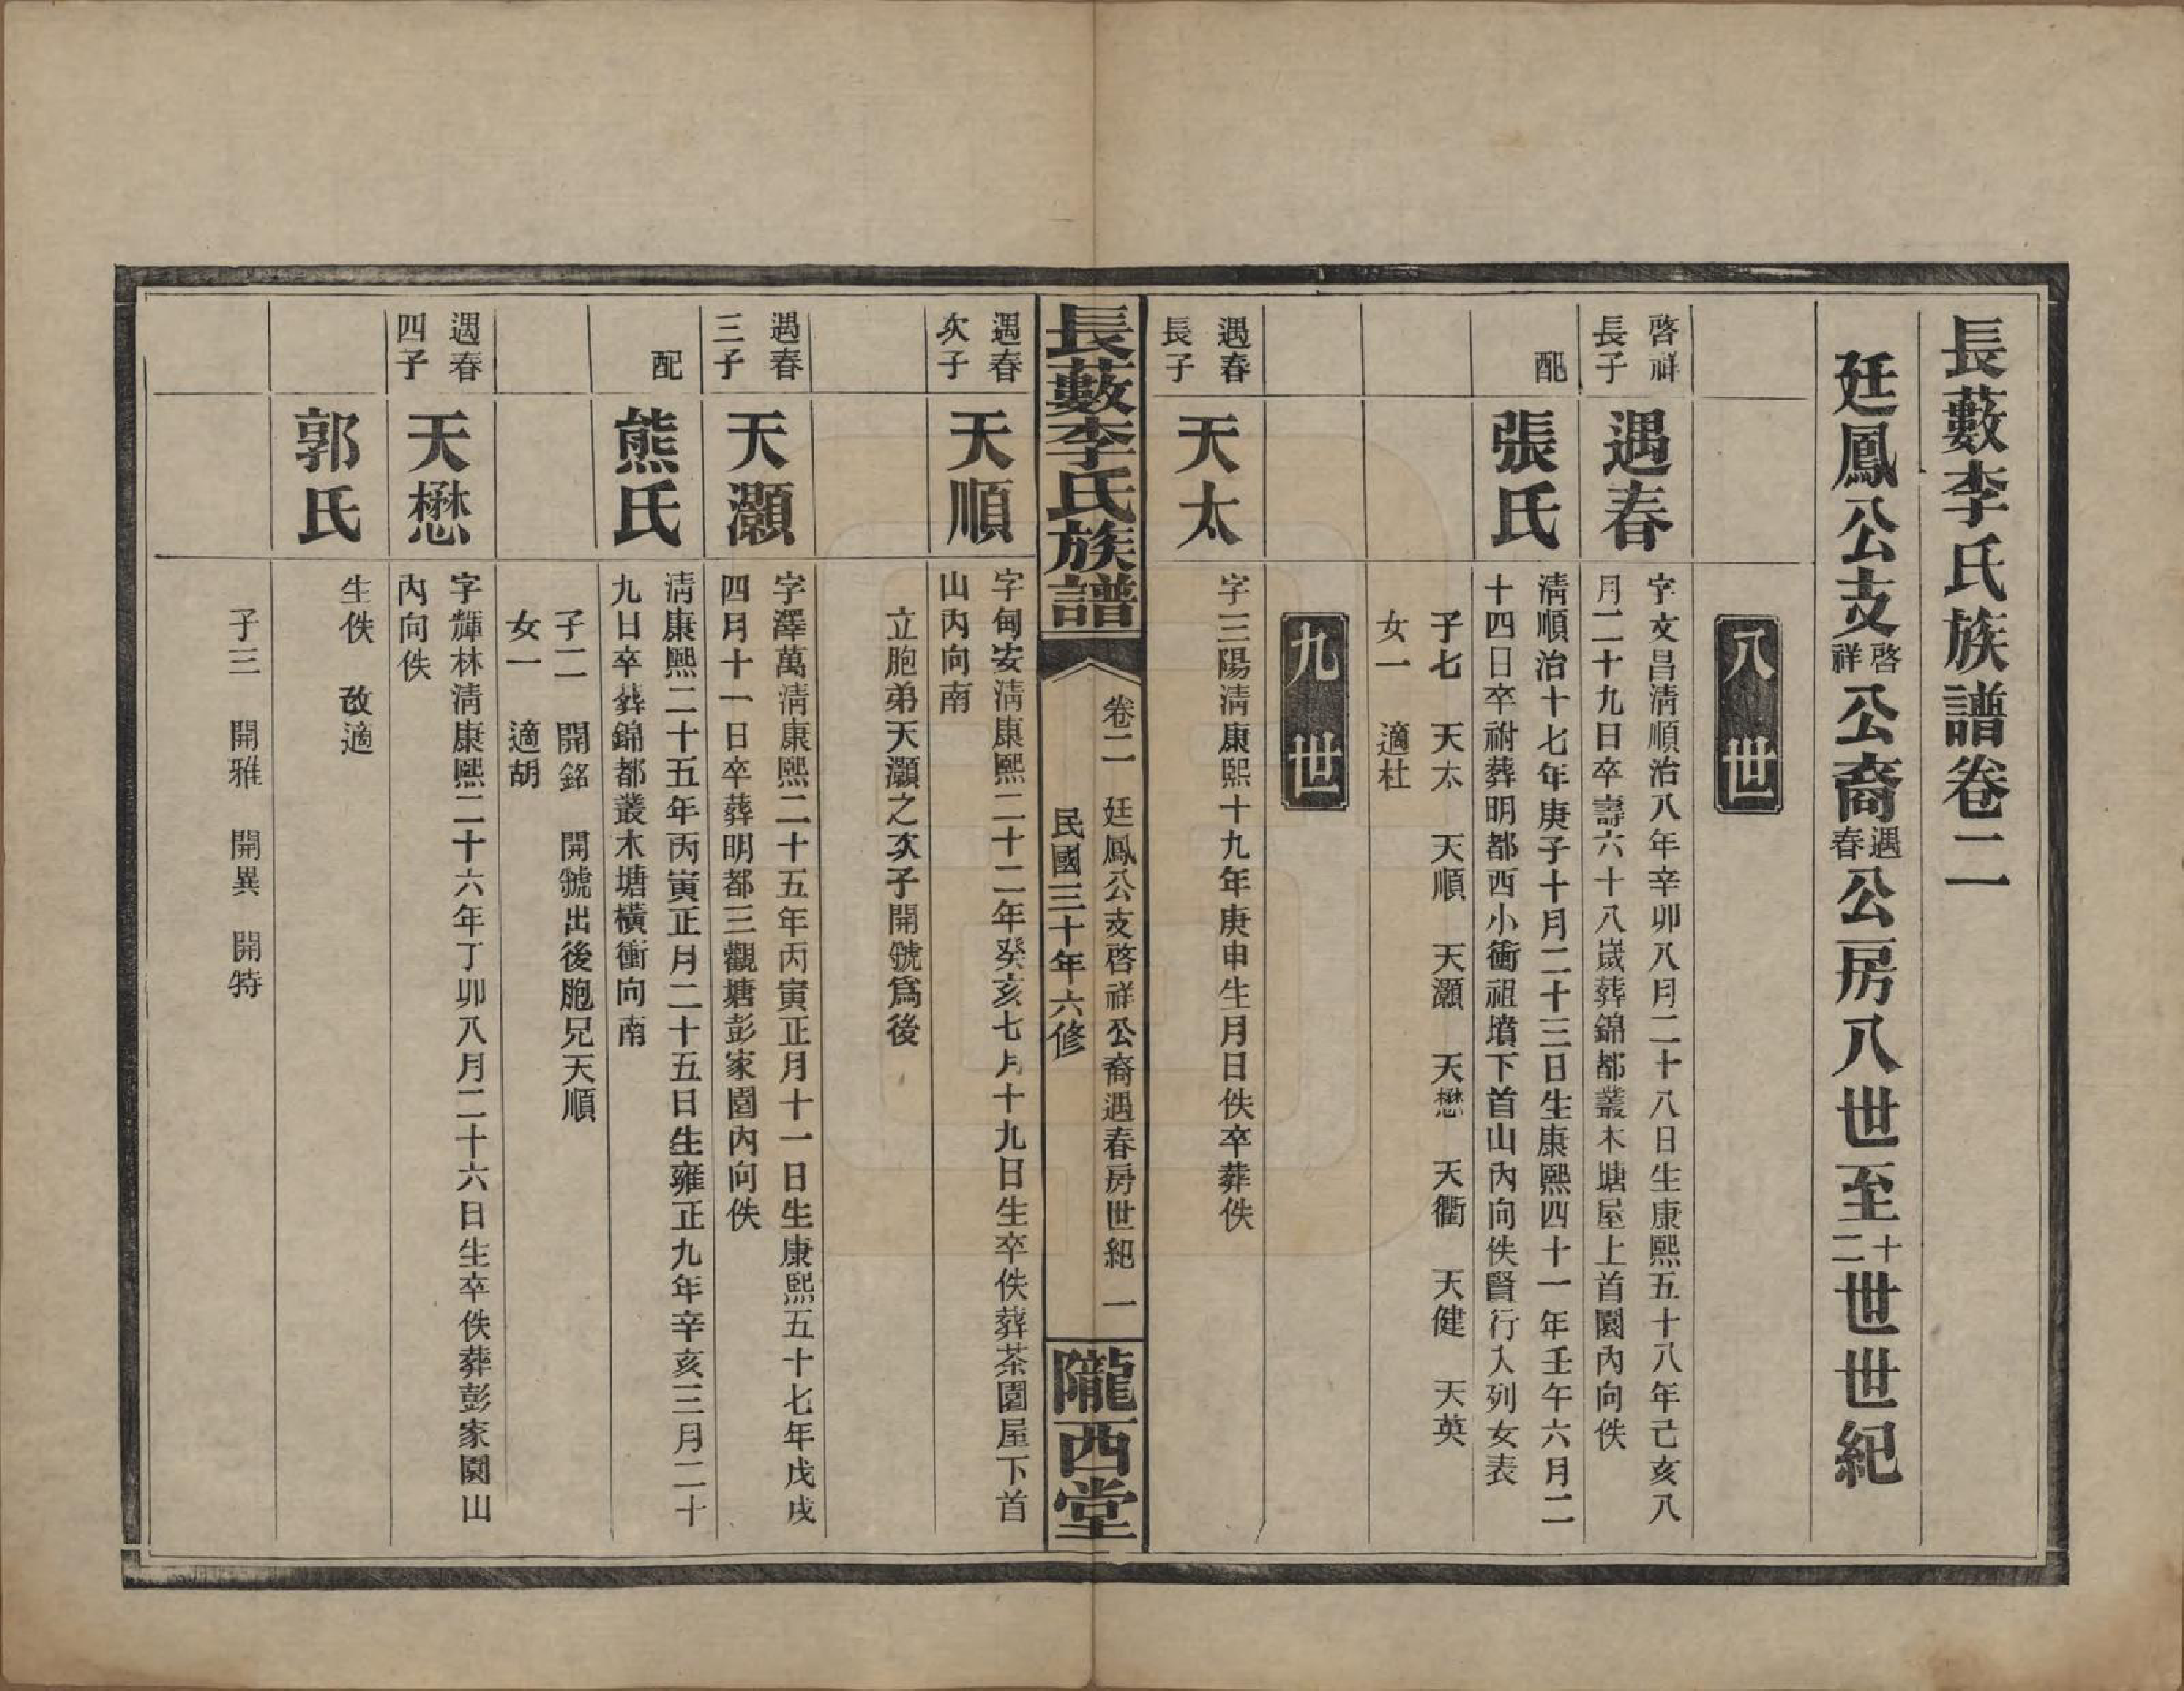 長藪李氏族譜卷二
廷鳳公支啓祥公裔遇春公房八世至十二世世紀
八世
啓祥
長子
遇春
字文昌淸順治八年辛卯八月二十八日生康熙五十八年己亥八
月二十九日卒壽六十八歲葬錦都叢木塘屋上首園內向佚
配
張氏
淸順治十七年庚子十月二十三日生康熙四十一年壬午六月二
十四日卒祔葬明都西小衝祖墳下首山內向佚賢行入列女表
子七 天太 天順 天灝 天懋 天衢 天健 天英
女一 適杜
九世
遇春
長子
天太
字三陽淸康熙十九年庚申生月日佚卒葬佚
長藪李氏族譜
卷二 廷鳳公支啓祥公裔遇春房世紀 一
民國三十年六修
隴西堂
遇春
次子
天順
字甸安淸康熙二十二年癸亥七月十九日生卒佚葬茶園屋下首
山內向南
立胞弟天灝之次子開號爲後
遇春
三子
天灝
字澤萬淸康熙二十五年丙寅正月十一日生康熙五十七年戊戌
四月十一日卒葬明都三觀塘彭家園內向佚
配
熊氏
淸康熙二十五年丙寅正月二十五日生雍正九年辛亥三月二十
九日卒葬錦都叢木塘橫衝向南
子二 開銘 開號出後胞兄天順
女一 適胡
遇春
四子
天懋
字輝林淸康熙二十六年丁卯八月二十六日生卒佚葬彭家園山
內向佚
郭氏
生佚 改適
子三 開雅 開異 開特